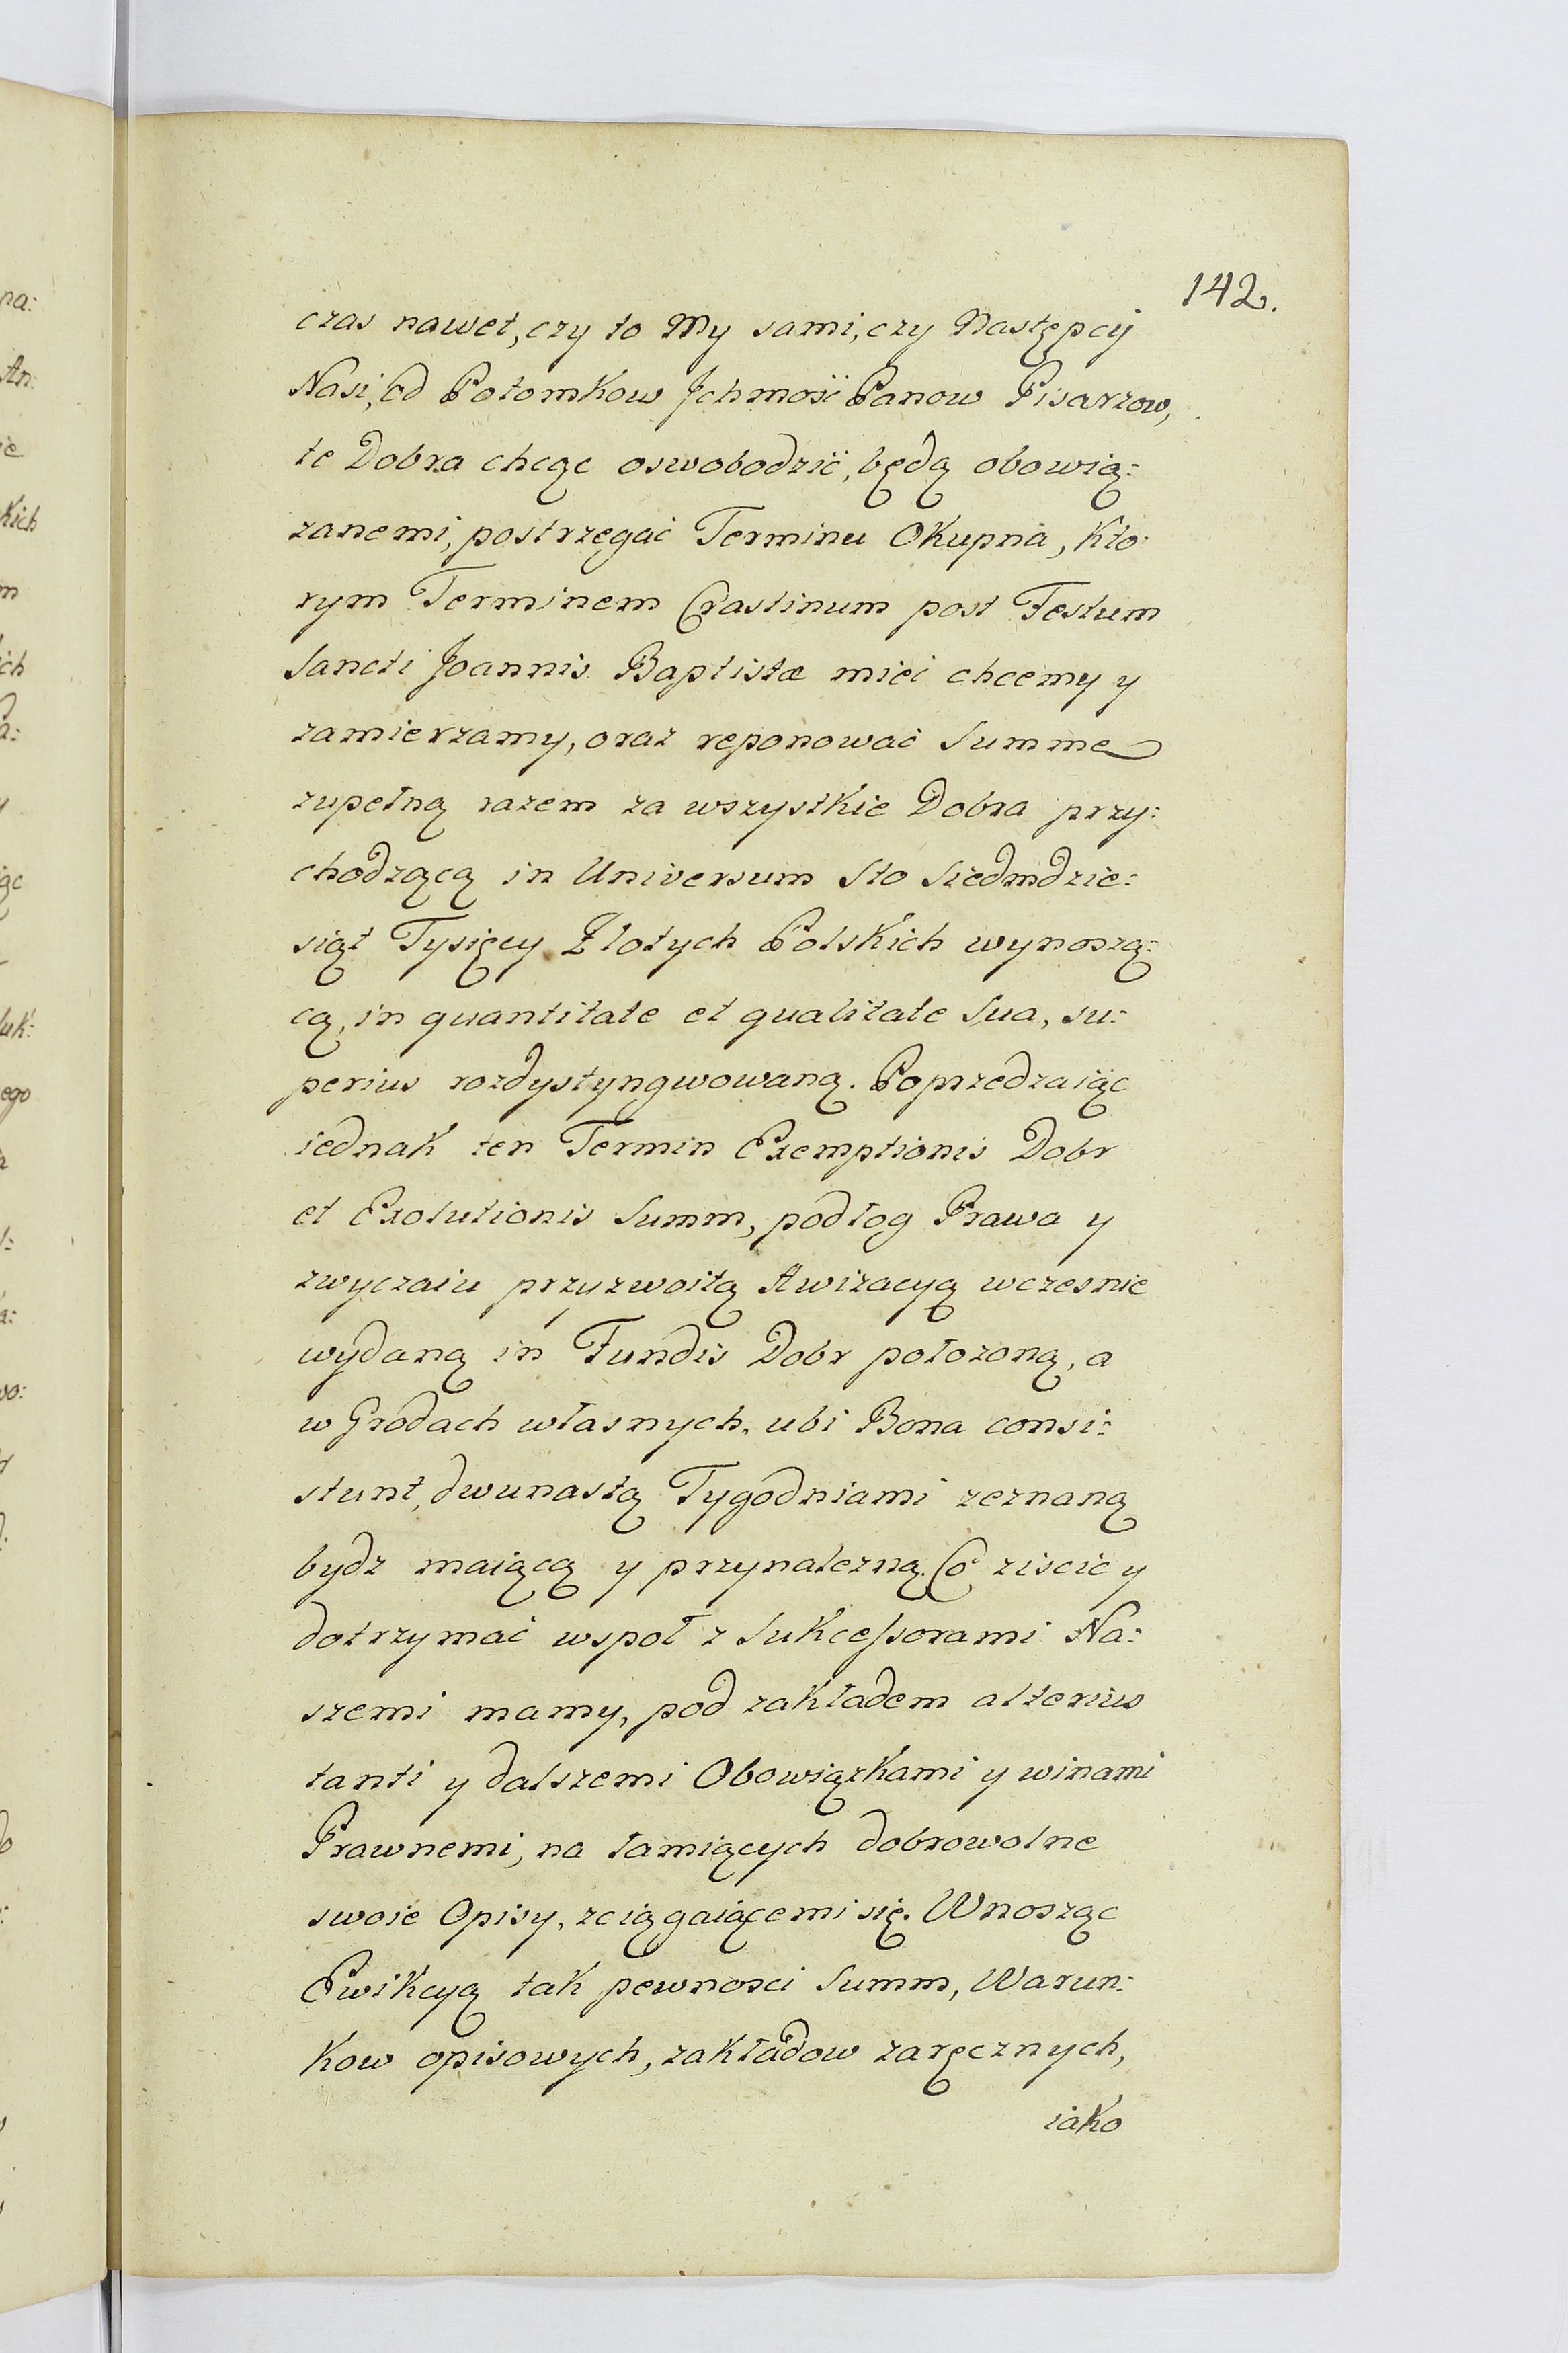 142.
czas nawet, czy to My sami, czy Następcy
Nasi, od Potomkow Jchmość Panow Pisarzow,
te Dobra chcąc oswobodzić, będą obowią:
zanemi, postrzegać Terminu Okupna, Kto:
rym Terminem Crastinum post Festum
Sancti Joannis Baptistæ mieć chcemy y
zamierzamy, oraz reponować Summę
zupełną razem za wszystkie Dobra przy:
chodzącą in Universum Sto Siedmdzie:
siąt Tysięcy Złotych Polskich wynoszą:
cą, in quantitate et qualitate Sua, su:
perius rozdystyngwowaną. Poprzedzaiąc
iednak ten Termin Exemptionis Dobr
et Exolutionis Summ, podłog Prawa y
zwyczaiu przyzwoitą Awizacyą wczesnie
wydaną in Fundis Dobr położoną, a
w Grodach własnych, ubi Bona consi:
stunt, dwunastą Tygodniami zeznaną
bydz maiącą y przynalezną. Co ziscić y
dotrzymać wspoł z Sukcessorami Na:
szemi mamy, pod zakładem alterius
tanti y dalszemi Obowiązkami y winami
Prawnemi, na łamiących dobrowolne
swoie Opisy, zciągaiącemi się. Wnosząc
Ewikcyą tak pewnosci Summ, Warun:
kow opisowych, zakładow zaręcznych,
iako